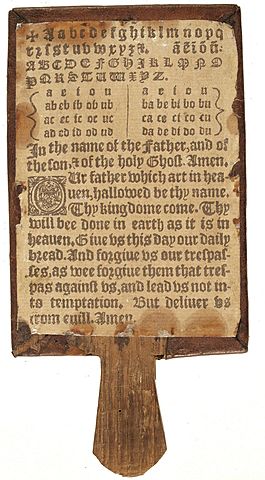 ✠ A a b c d e f g h i k l m n o p q
r ꝛ s ſ t u v w x y z ⁊. ã ẽ ĩ õ ũ.
A B C D E F G H I K L M N O
P Q R S T U W X Y Z.
a e i o u a e i o u
ab eb ib ob ub ba be bi bo bu
ac ec ic oc uc ca ce ci co cu
ad ed id od ud da de di do du
In the name of the Father, and of
the ſon, & of the holy Ghoſt. Amen.
Our father which art in hea-
uen, hallowed be thy name.
Thy kingdome come. Thy
will bee done in earth as it is in
heauen. Giue vs this day our daily
bread. And forgiue vs our treſpaſ-
ſes, as wee forgiue them that treſ-
pas againſt vs, and lead vs not in-
to temptation. But deliuer vs
from euill. Amen.